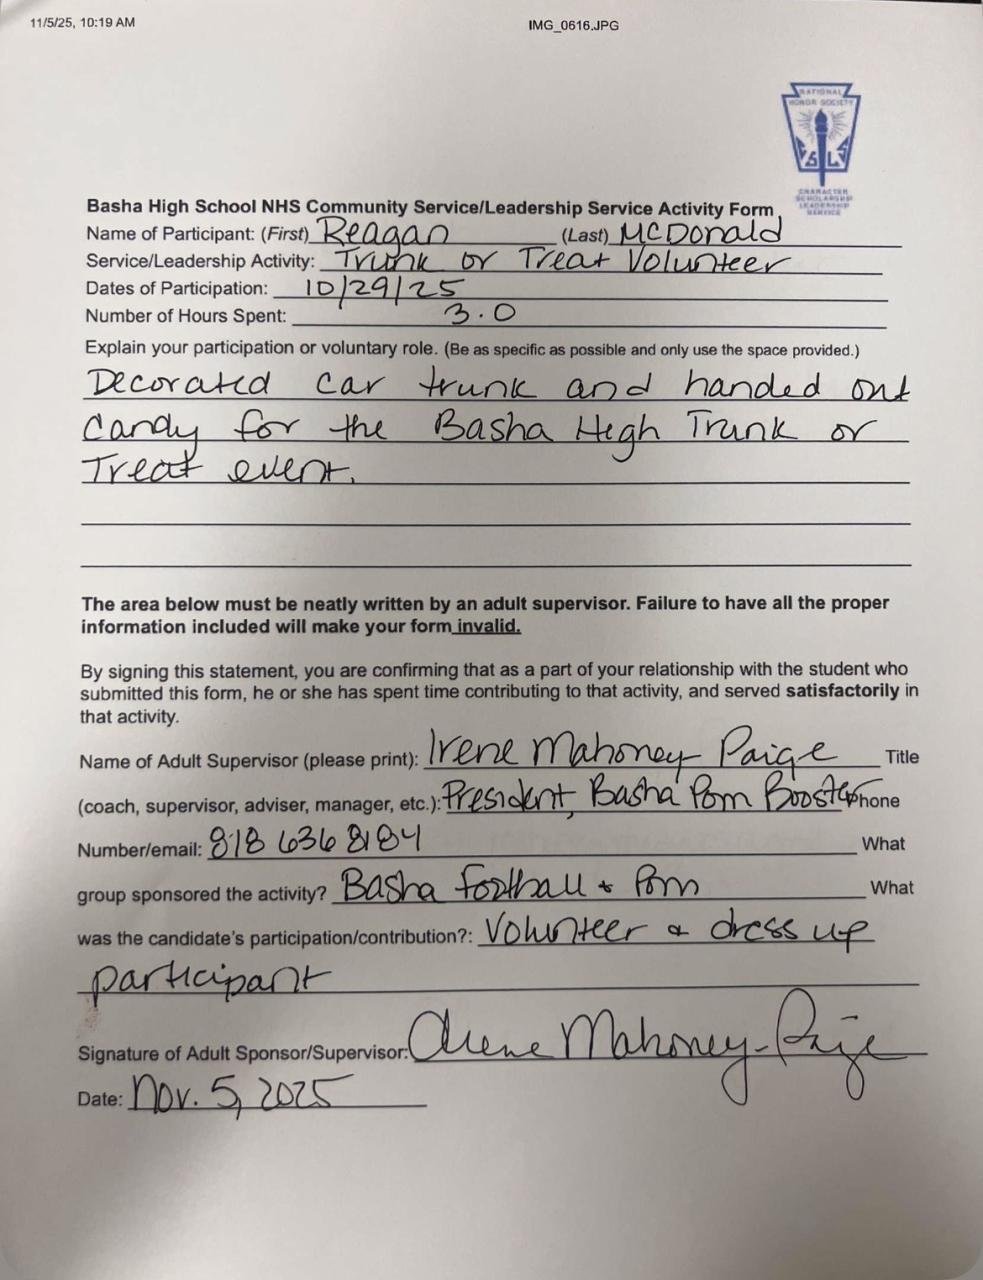 11/5/25, 10:19 AM IMG_0616.JPG
NATIONAL
HONOR SOCIETY
CHARACTER
SCHOLARSHIP
LEADERSHIP
SERVICE
Basha High School NHS Community Service/Leadership Service Activity Form
Name of Participant: (First) Reagan (Last) McDonald
Service/Leadership Activity: Trunk or Treat Volunteer
Dates of Participation: 10/29/25
Number of Hours Spent: 3.0
Explain your participation or voluntary role. (Be as specific as possible and only use the space provided.)
Decorated car trunk and handed out
candy for the Basha High Trunk or
Treat event.
The area below must be neatly written by an adult supervisor. Failure to have all the proper
information included will make your form invalid.
By signing this statement, you are confirming that as a part of your relationship with the student who
submitted this form, he or she has spent time contributing to that activity, and served satisfactorily in
that activity.
Name of Adult Supervisor (please print): Irene Mahoney Paige Title
(coach, supervisor, adviser, manager, etc.): President, Basha Pom Booster Phone
Number/email: 818 636 8184 What
group sponsored the activity? Basha football & Pom What
was the candidate's participation/contribution?: Volunteer & dress up
participant
Signature of Adult Sponsor/Supervisor: Irene Mahoney-Paige
Date: Nov. 5, 2025